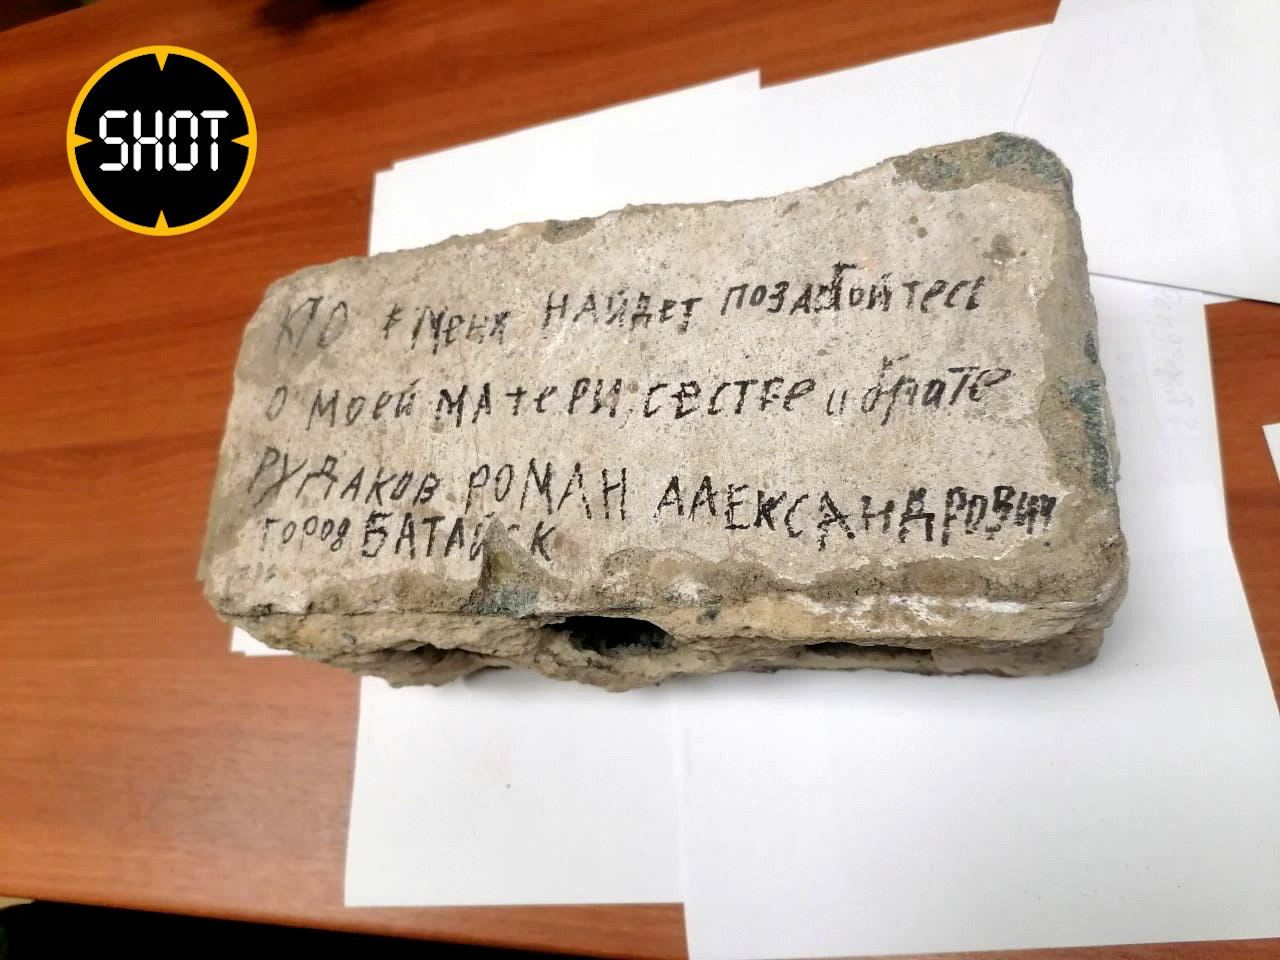 SHOT
КТО меня НАЙДЕТ ПОЗАБОЙТЕСЬ
О МОЕЙ МАТЕРИ, СЕСТРЕ и брате
РУДАКОВ РОМАН ААЕКСАНДРОВИЧ
ГОРОД БАТАЙСК